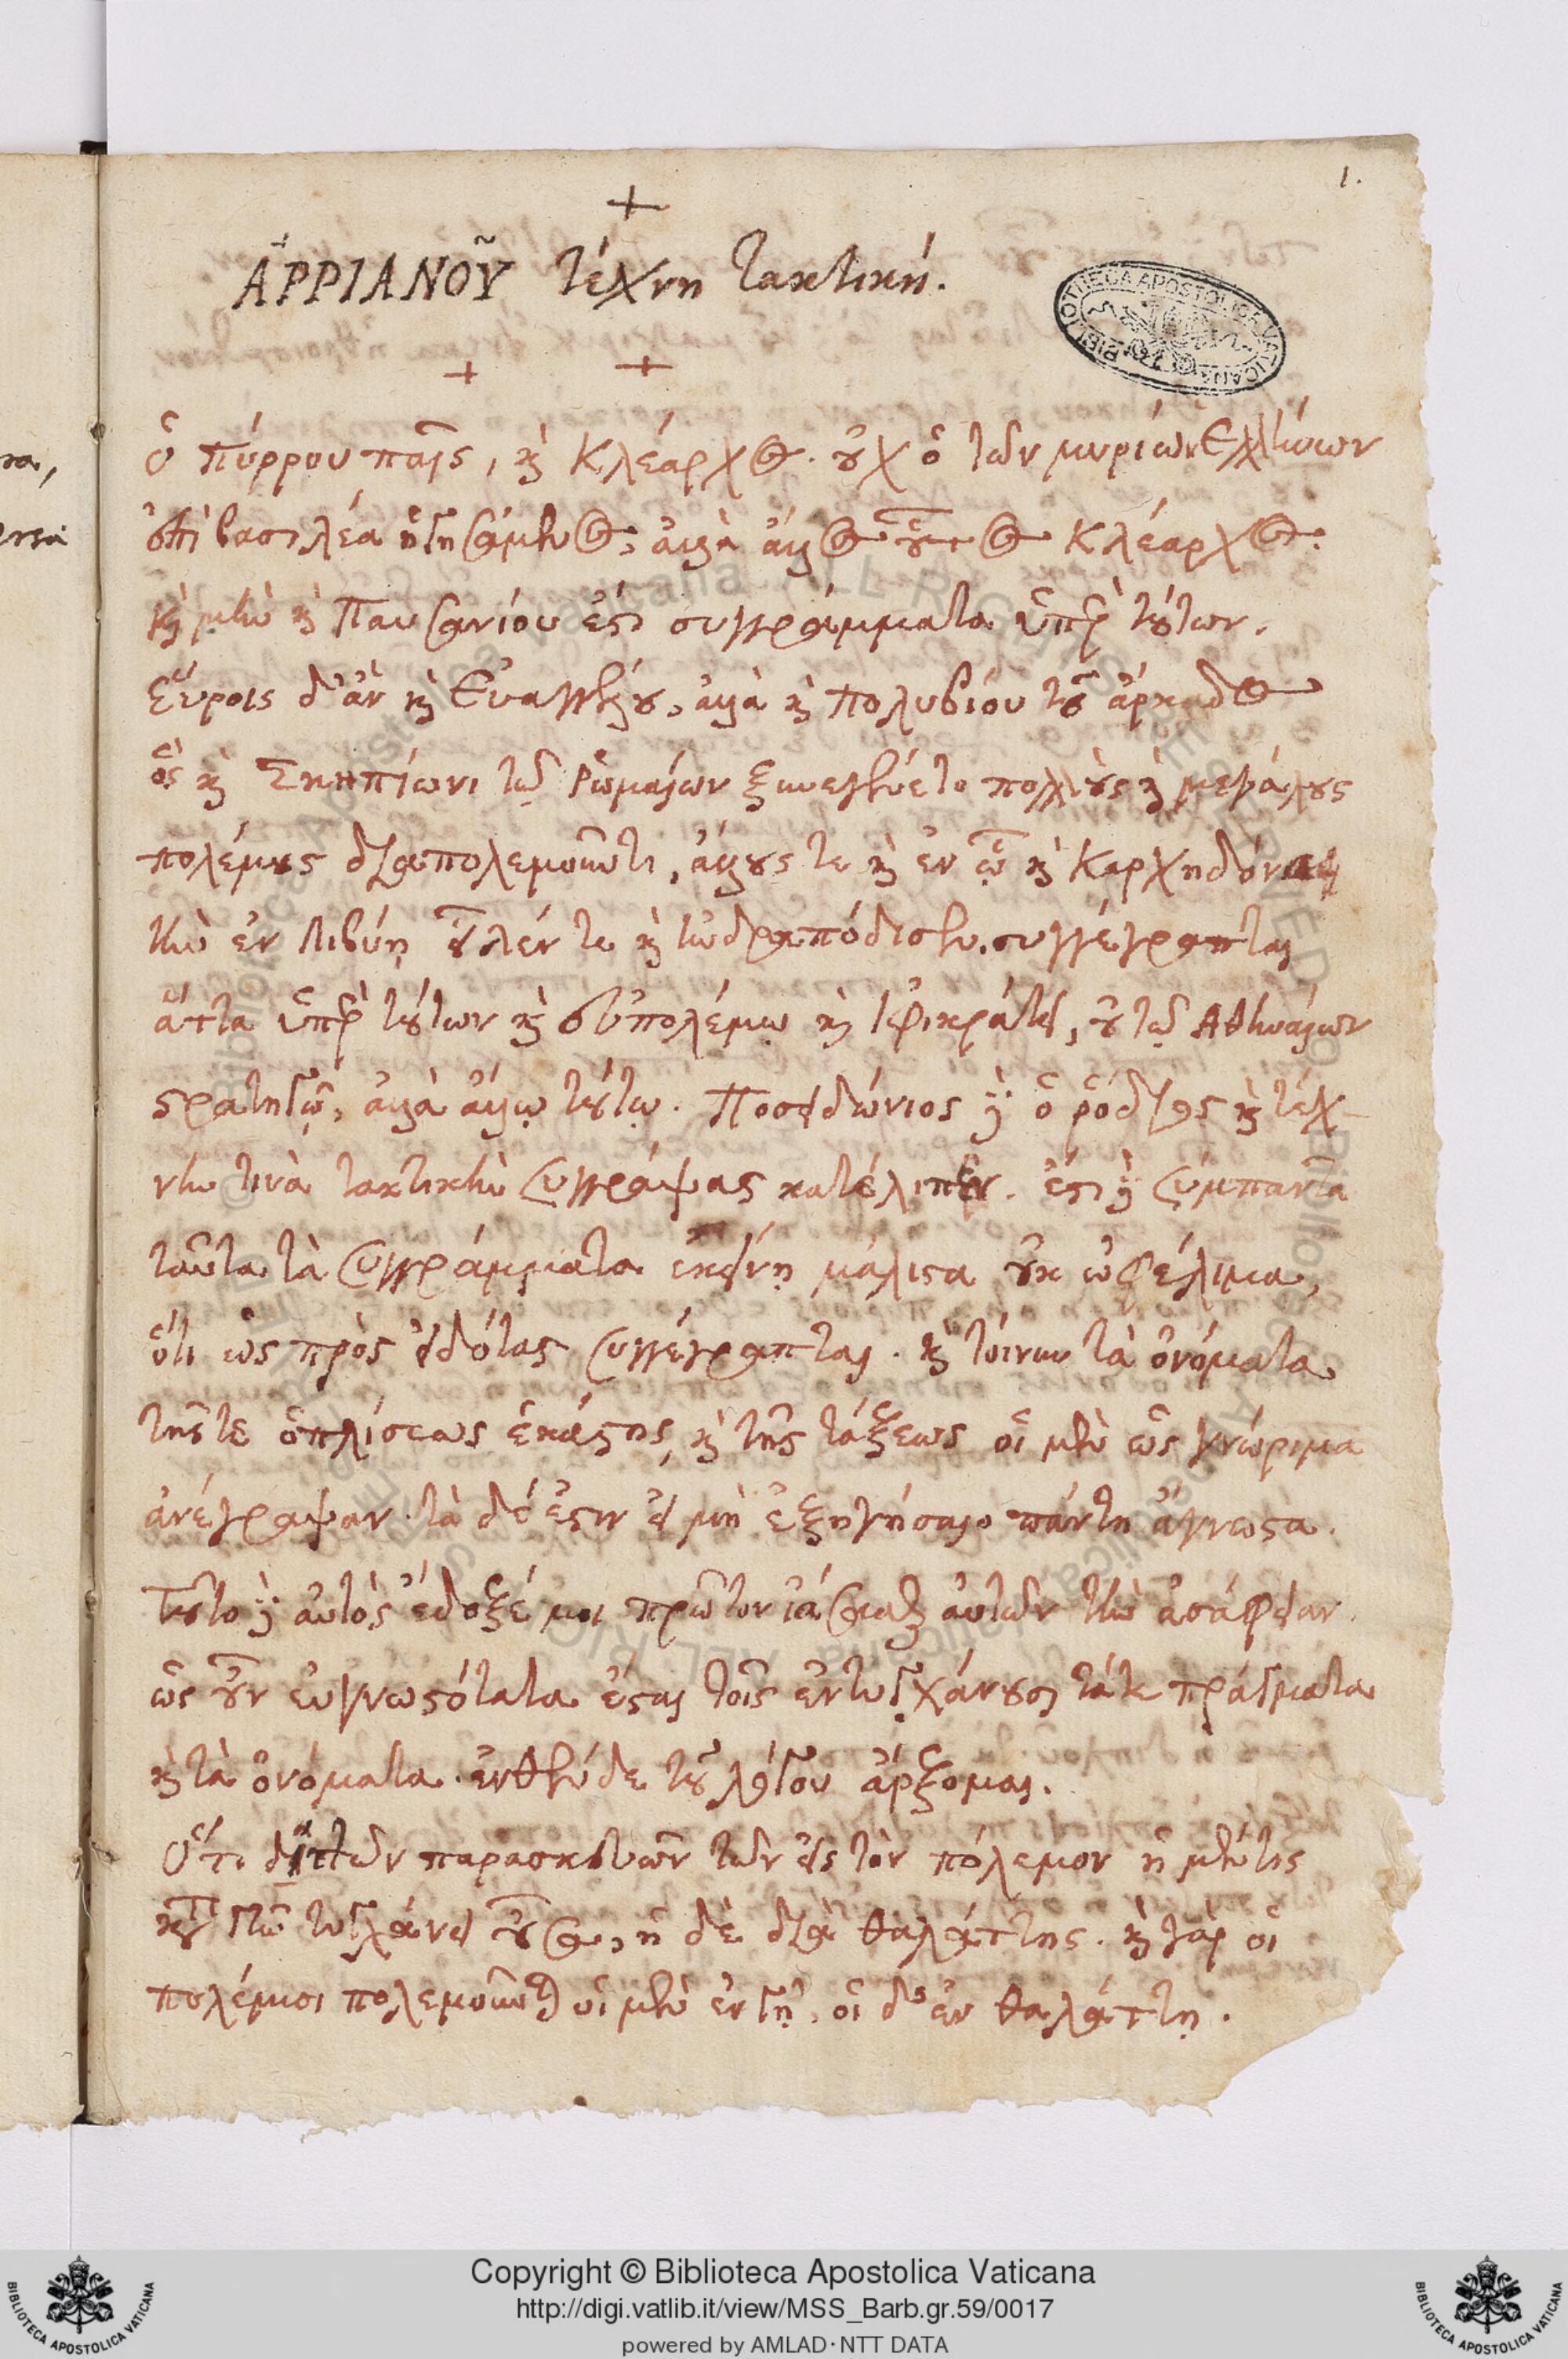 1.
ἈΡΡΙΑΝΟῦ τέχνη τακτική.
ὁ Πύρρου παῖς, κὶ Κλέαρχος. οὐχ ὁ τῶν μυρίων Ἑλλήνων
ἐπὶ βασιλέα ἡγησάμενος, ἀλλὰ ἄλλος οὗτος Κλέαρχος.
κὶ μὴν κὶ Παυσανίου ἔστι συγγράμματα ὑπὲρ τούτων.
εὕροις δ' ἂν κὶ Εὐαγγέλου, ἀλλὰ κὶ πολυβίου τοῦ ἀρκαδος
ὃς κὶ Σκηπίωνι τῷ Ῥωμαίων ξυνεγένετο πολλοὺς κὶ μεγάλους
πολέμους διαπολεμοῦντι, ἄλλους τε κὶ ἐν ᾧ κὶ Καρχηδόνα
τὴν ἐν Λιβύῃ εἷλέν τε κὶ ἠνδραπόδισεν. συγγέγραπται
ἄττα ὑπὲρ τούτων κὶ εὐπολέμῳ κὶ ἰφικράτει, οὐ τῷ Ἀθηναίων
στρατηγῷ, ἀλλὰ ἄλλῳ τούτῳ. Ποσειδώνιος δὲ ὁ ῥόδιος κὶ τέχ-
νην τινὰ τακτικὴν συγγράψας κατέλιπεν. ἔστι δὲ σύμπαντα
ταῦτα τὰ συγγράμματα ἐκείνῃ μάλιστα οὐκ ὠφέλιμα,
ὅτι ὡς πρὸς εἰδότας συγγέγραπται. κὶ τοίνυν τὰ ὀνόματα
τῆς τε ὁπλίσεως ἑκάστης, κὶ τῆς τάξεως οἱ μὲν ὡς γνώριμα
ἀνέγραψαν. τὰ δέ ἐστιν εἰ μὴ ἐξηγήσαιο πάντη ἄγνωστα.
Τοῦτο δὲ αὐτὸς ἔδοξέ μοι πρῶτον ἰάσασθαι αὐτῶν τὴν ἀσάφειαν.
ὡς οὖν εὐγνωστότατα ἔσται τοῖς ἐντυγχάνουσι τά τε πράγματα
κὶ τὰ ὀνόματα. ἐνθένδε τοῦ λόγου ἄρξομαι.
Ὅτι δὴ τῶν παρασκευῶν τῶν εἰς τὸν πόλεμον ἡ μέν τις
κατὰ γῆν τυγχάνει οὖσα, ἡ δὲ διὰ θαλάττης. κὶ γὰρ οἱ
πολέμιοι πολεμοῦνται οἱ μὲν ἐν γῇ, οἱ δ' ἐν θαλάττῃ.
BIBLIOTECA APOSTOLICA VATICANA
Copyright © Biblioteca Apostolica Vaticana
http://digi.vatlib.it/view/MSS_Barb.gr.59/0017
powered by AMLAD · NTT DATA
BIBLIOTECA APOSTOLICA VATICANA
BIBLIOTECA APOSTOLICA VATICANA